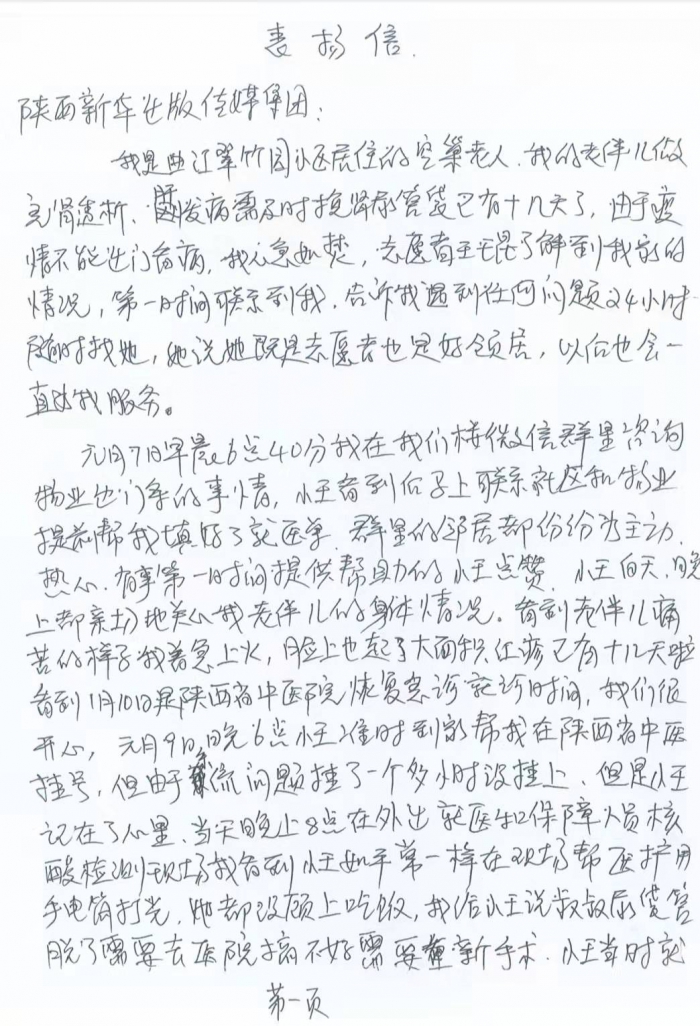 表扬信.
陕西新华出版传媒集团:
我是曲江翠竹园小区居住的空巢老人.我的老伴儿做
完肾透析、因发病需及时换肾尿管袋已有十几天了,由于疫
情不能进门看病,我心急如焚,志愿者王昆了解到我家的
情况,第一时间联系到我.告诉我遇到任何问题24小时
随时找她,她说她既是志愿者也是好领居,以后也会一
直为我服务。
元月7日早晨6点40分我在我们楼微信群里咨询
物业出门条的事情,小王看到后马上联系社区和物业
提前帮我填好了就医单.群里的邻居都份份为主动.
热心.有事第一时间提供帮助的小王点赞 小王白天.晚
上都亲场地关心我老伴儿的身体情况。看到老伴儿痛
苦的样子我着急上火,脸上也起了大面积红疹已有十几天啦
看到1月10日是陕西省中医院恢复急诊就诊时间,我们很
开心,元月9日晚6点小王准时到家帮我在陕西省中医
挂号,但由于系流问题挂了一个多小时没挂上.但是小王
记在了心里.当天晚上8点在外出就医和保障人员核
酸检测现场我看到小王如平常一样在现场帮医护用
手电筒打光.她都没顾上吃饭,我给小王说叔叔尿袋管
脱了需要去医院搞不好需要重新手术.小王当时就
第一页